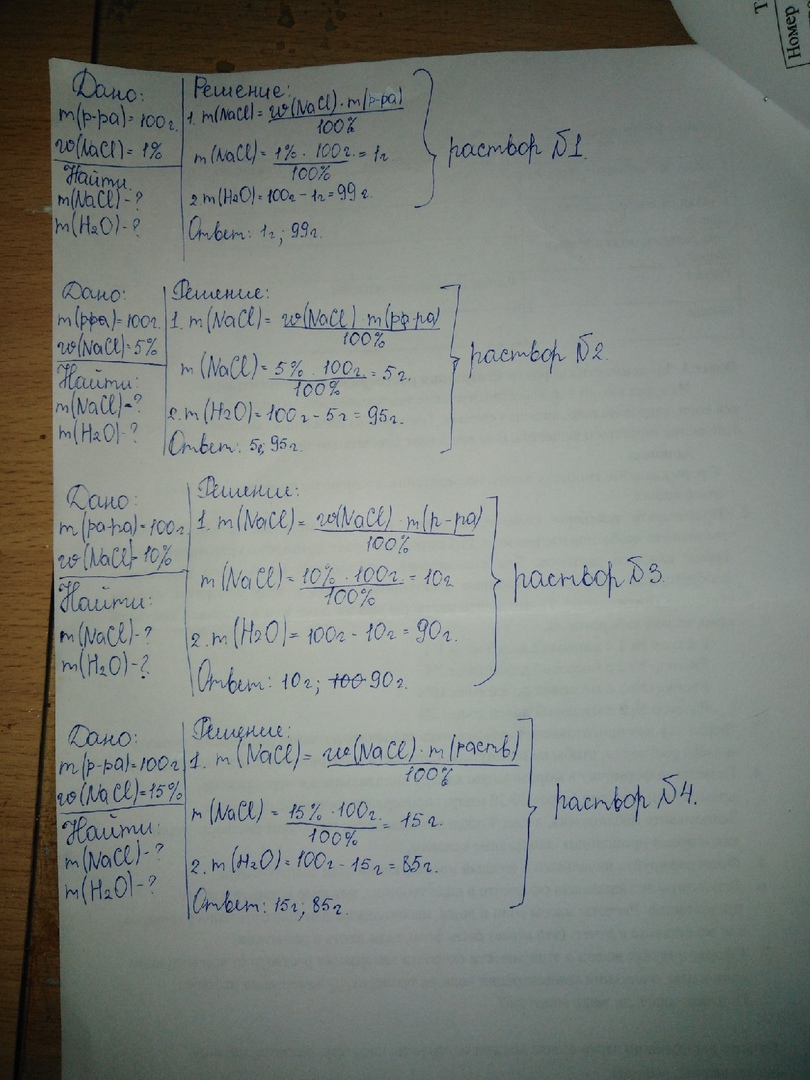 Номер
Дано:
m(р-ра)=100г.
w(NaCl)=1%
Найти
m(NaCl)-?
m(H₂O)-?
Решение:
1. m(NaCl)= w(NaCl)·m(р-ра)
100%
m(NaCl)= 1%·100г. = 1г
100%
2. m(H₂O)=100г-1г=99г.
Ответ: 1г; 99г.
раствор №1.
Дано:
m(рра)=100г.
w(NaCl)=5%
Найти:
m(NaCl)-?
m(H₂O)-?
Решение:
1. m(NaCl)= w(NaCl) m(рр-ра)
100%
m(NaCl)= 5%·100г. = 5г.
100%
2. m(H₂O)=100г-5г=95г.
Ответ: 5г; 95г.
раствор №2.
Дано:
m(ра-ра)=100г
w(NaCl)-10%
Найти:
m(NaCl)-?
m(H₂O)-?
Решение:
1. m(NaCl)= w(NaCl)·m(р-ра)
100%
m(NaCl)= 10%·100г. = 10г
100%
2. m(H₂O)=100г-10г=90г.
Ответ: 10г; 100 90г.
раствор №3.
Дано:
m(р-ра)=100г
w(NaCl)=15%
Найти:
m(NaCl)-?
m(H₂O)-?
Решение:
1. m(NaCl)= w(NaCl)·m(раств)
100%
m(NaCl)= 15%·100г. = 15г.
100%
2. m(H₂O)=100г-15г=85г.
Ответ: 15г; 85г.
раствор №4.